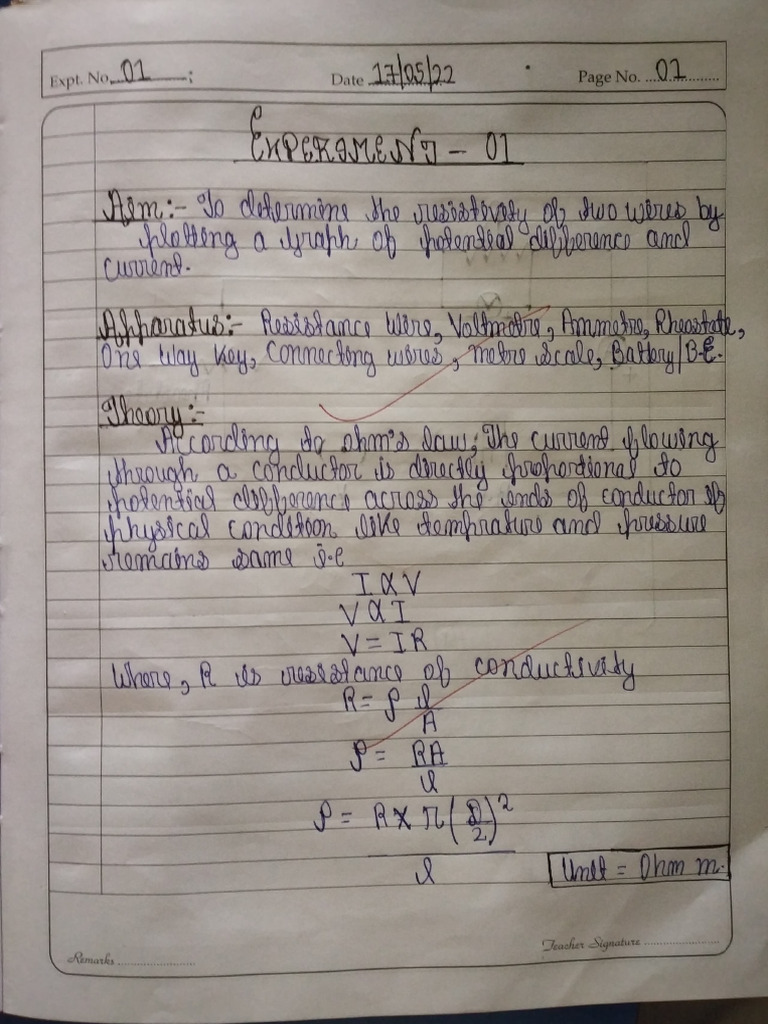 Expt. No. 01
Date 17/05/22
Page No. 01
EXPERIMENT - 01
Aim:- To determine the resistivity of two wires by
plotting a graph of potential difference and
current.
Apparatus:- Resistance Wire, Voltmetre, Ammetre, Rheostate,
One Way Key, Connecting wires, metre scale, Battery/B.E.
Theory:-
According to ohm's law, The current flowing
through a conductor is directly proportional to
potential difference across the ends of conductor if
physical condition like temprature and pressure
remains same i.e
I ∝ V
V ∝ I
V = IR
Where, R is resistance of conductivity
R = ρ l/A
ρ = RA/l
ρ = R × π(D/2)²/l
Unit = Ohm m.
Teacher Signature
Remarks